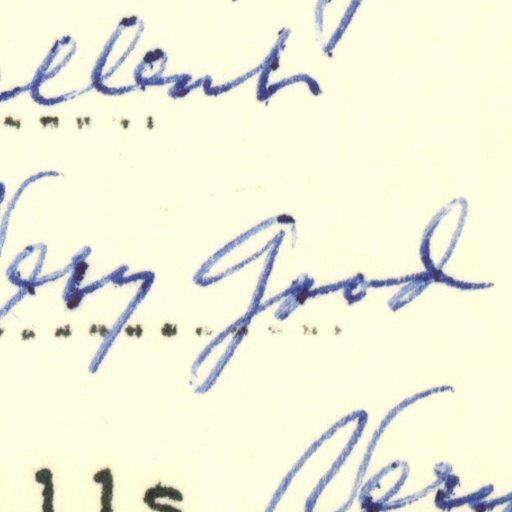 ellent
Very Good
lls Very